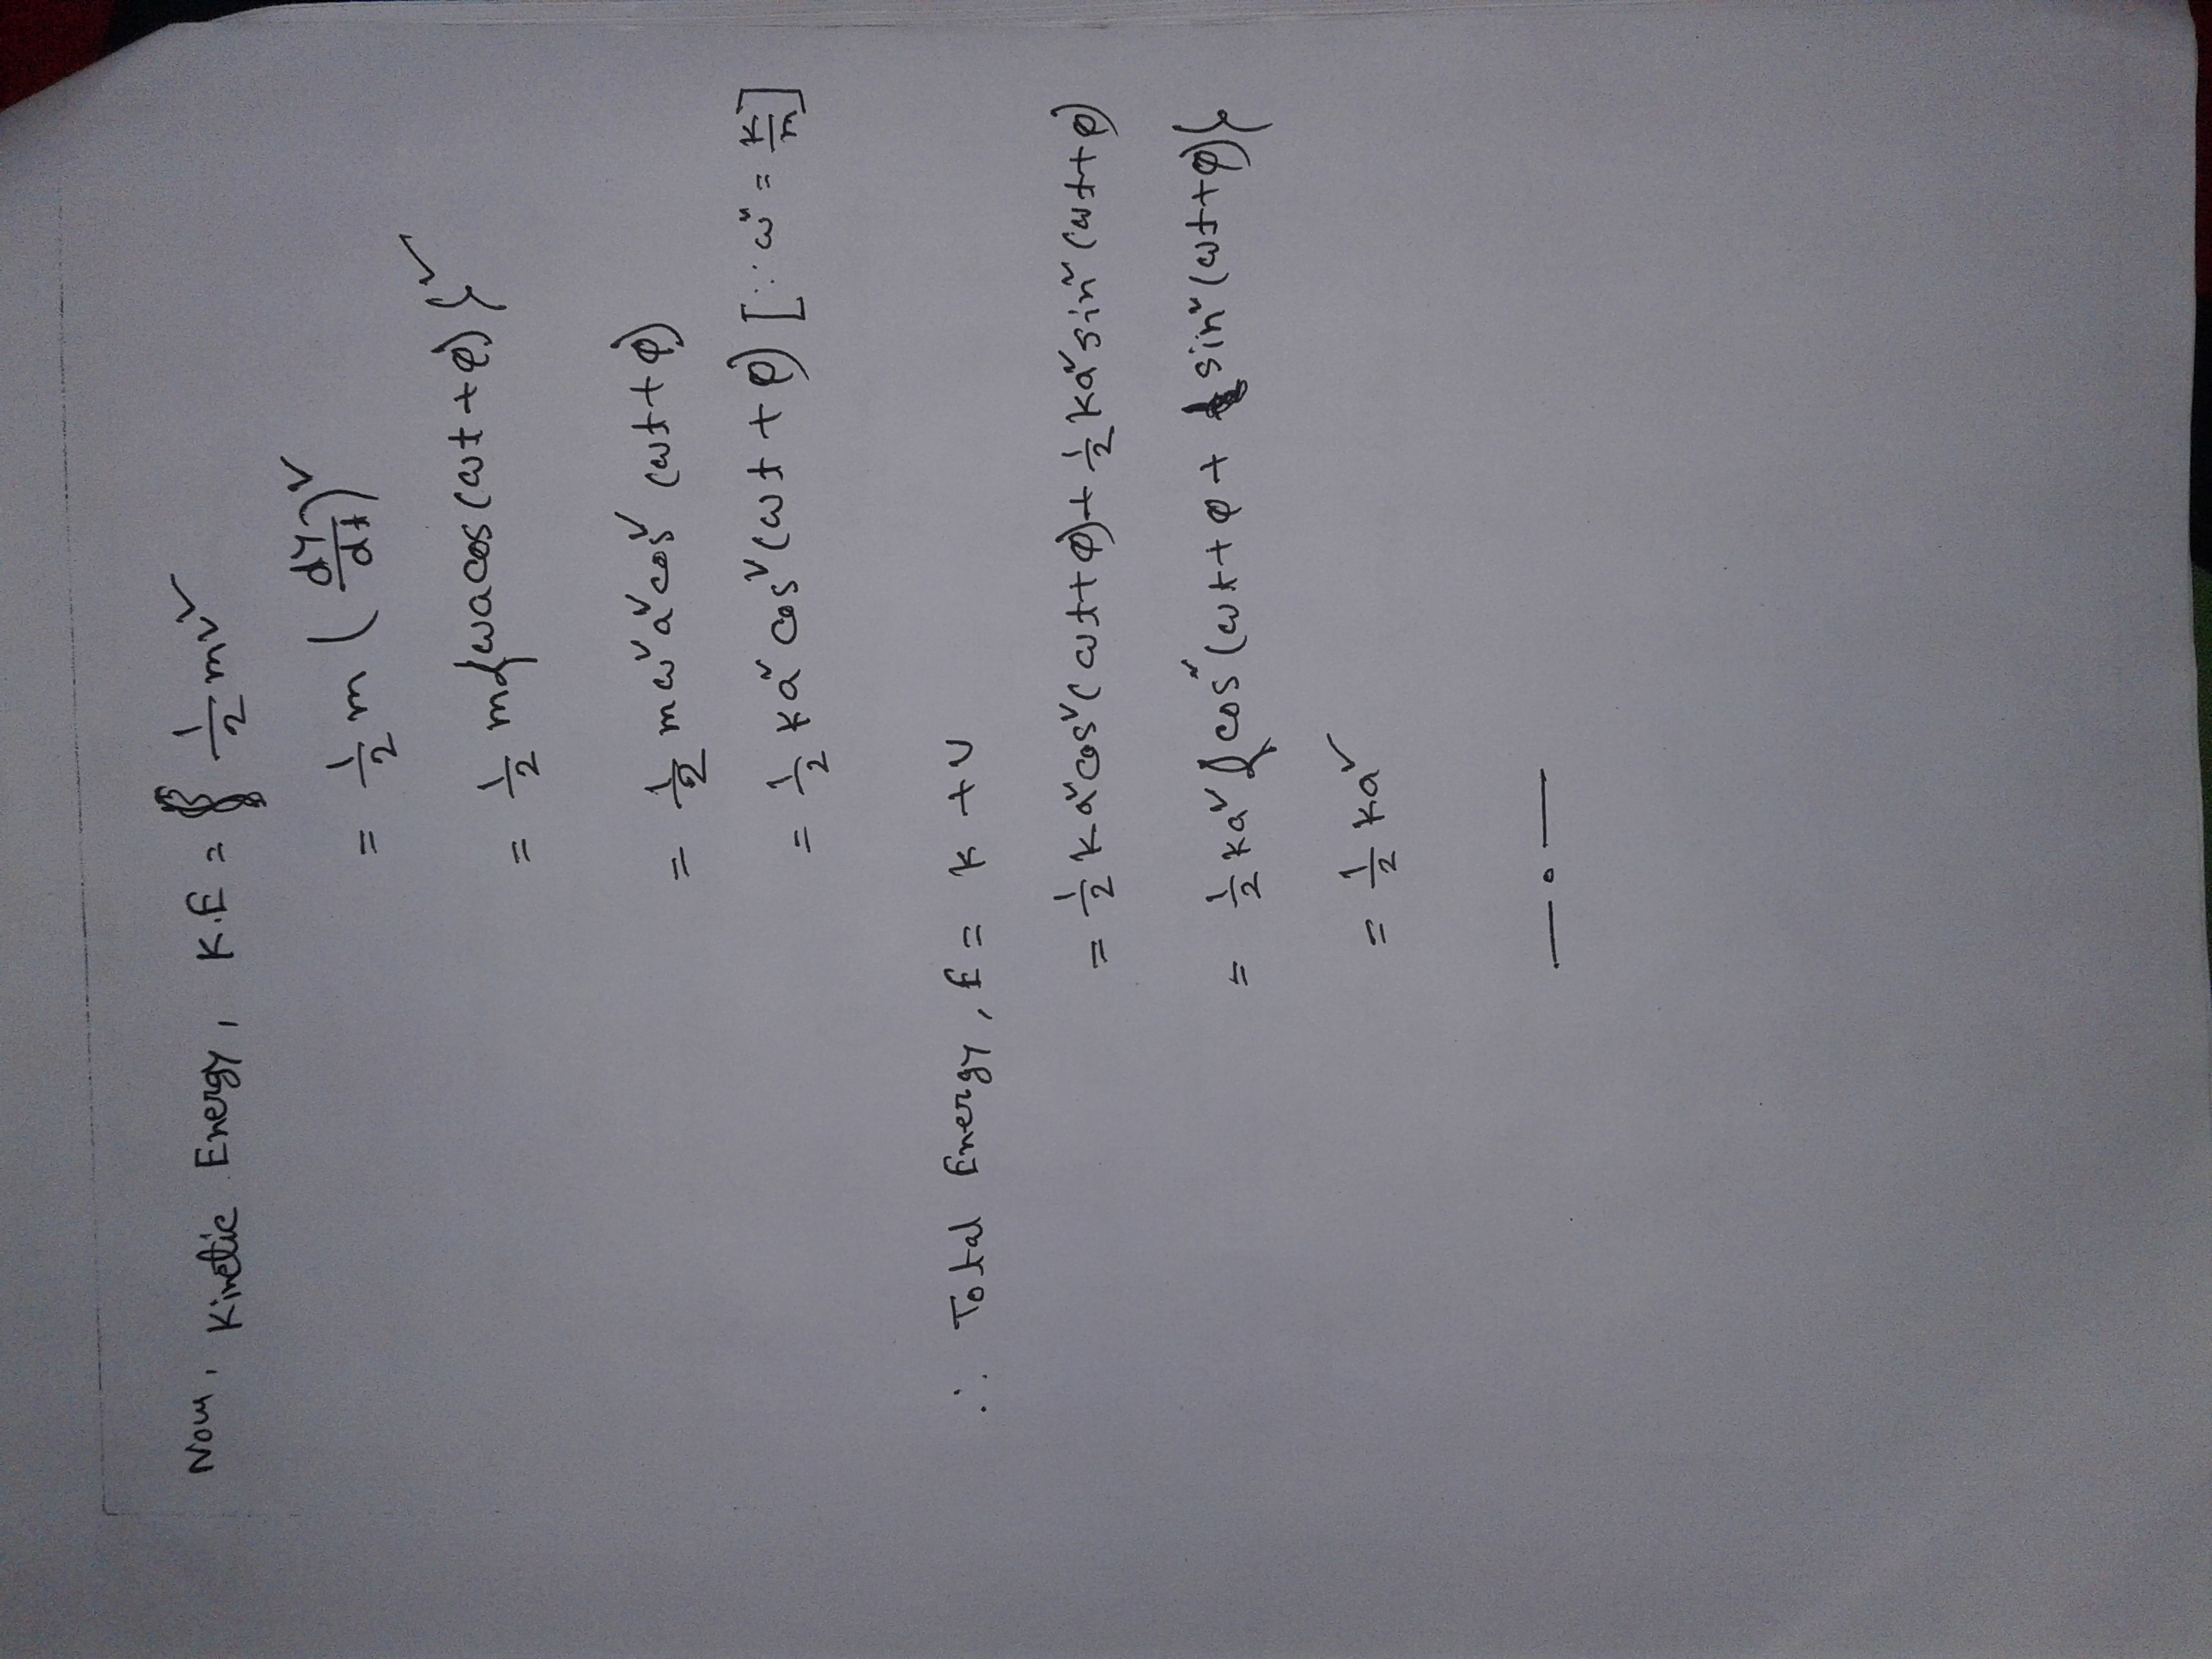 Now, Kinetic Energy, K.E = 1/2 mv²
= 1/2 m (dy/dt)²
= 1/2 m{ωa cos(ωt + φ)}²
= 1/2 mω²a²cos² (ωt + φ)
= 1/2 ka² cos²(ωt + φ) [∵ ω² = k/m]
∴ Total Energy, E = K + U
= 1/2 ka²cos²(ωt + φ) + 1/2 ka²sin²(ωt + φ)
= 1/2 ka²{cos²(ωt + φ + sin²(ωt + φ)}
= 1/2 ka²